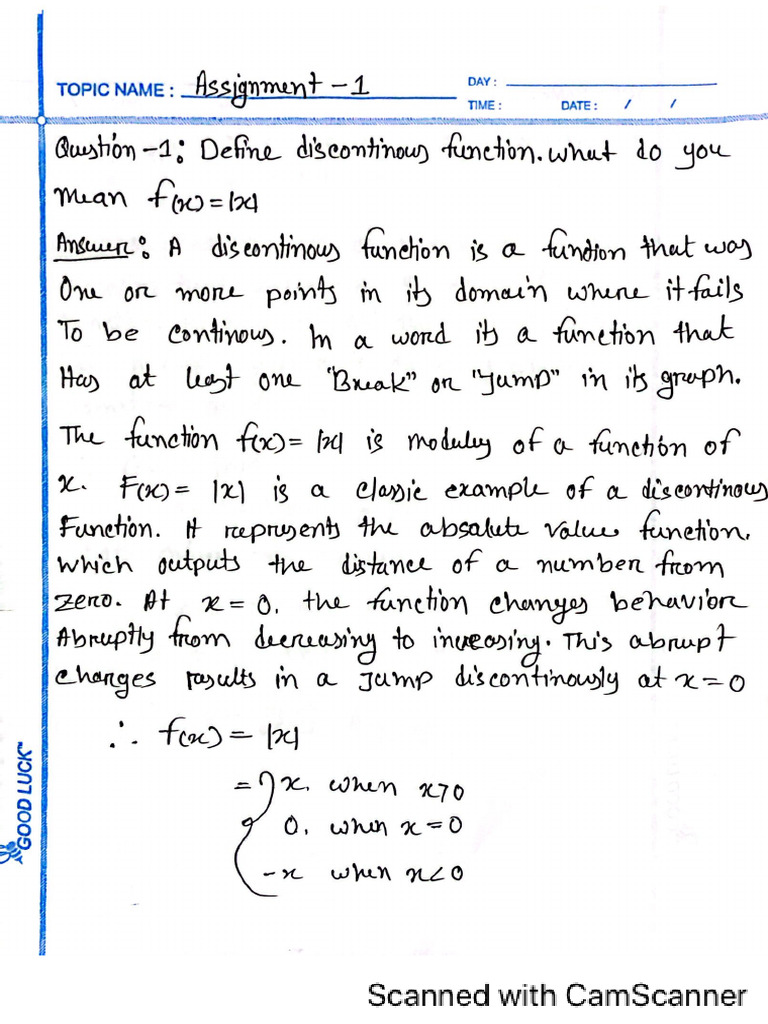 TOPIC NAME : Assignment - 1
DAY :
TIME : DATE : / /
Question -1: Define discontinous function. what do you
mean f(x) = |x|
Answer: A discontinous function is a function that was
One or more points in its domain where it fails
To be continous. In a word its a function that
Has at least one "Break" or "Jump" in its graph.
The function f(x) = |x| is modulus of a function of
x. F(x) = |x| is a classic example of a discontinous
Function. It represents the absalute value function.
which outputs the distance of a number from
zero. At x = 0. the function changes behavior
Abruptly from decreasing to increasing. This abrupt
changes results in a Jump discontinously at x = 0
∴ f(x) = |x|
= { x. when x>0
0. when x = 0
-x when x<0
GOOD LUCK™
Scanned with CamScanner